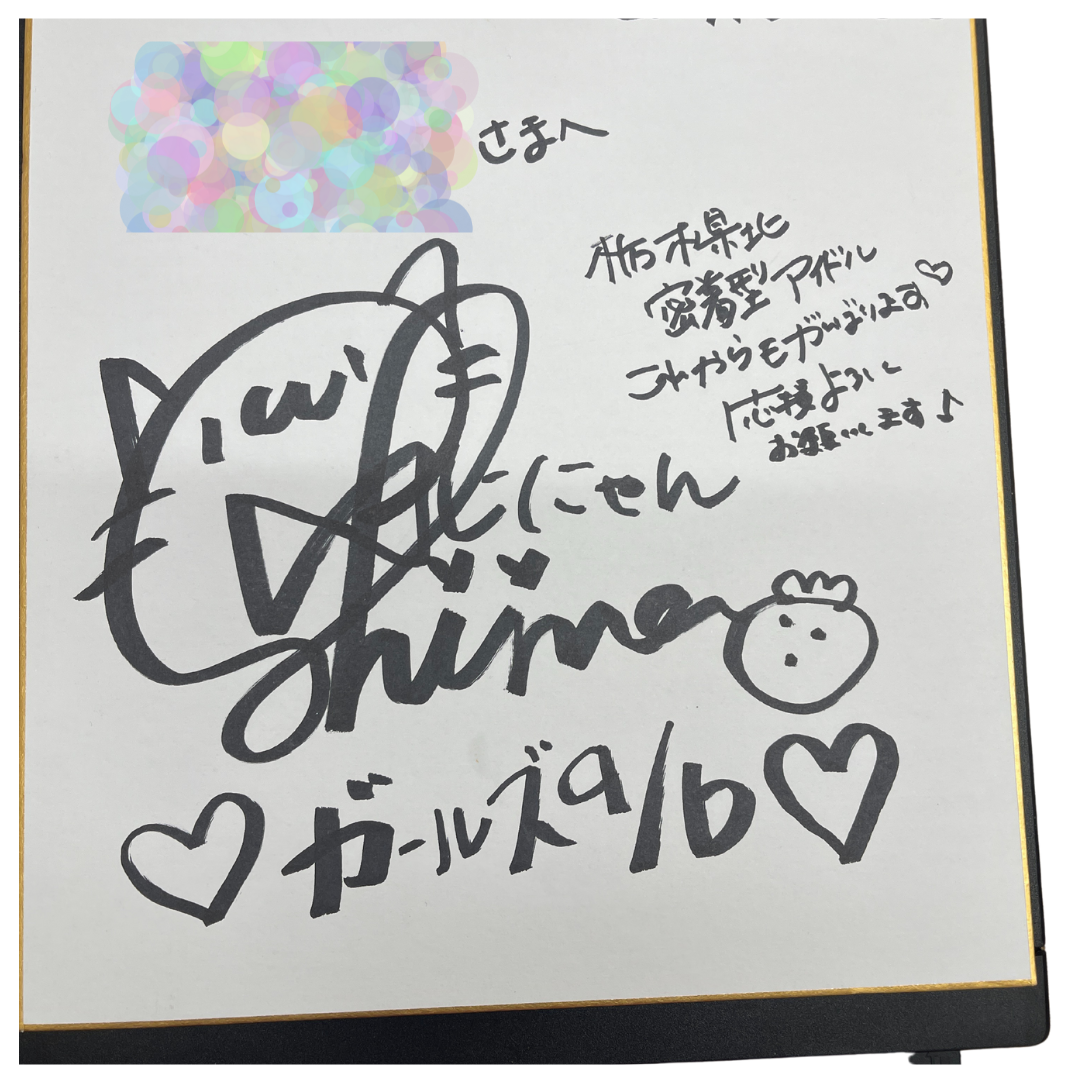 さまへ
栃木県北
密着型アイドル
これからもがんばります♡
応援よろしく
お願いします♪
にゃん
Shima
♡ガールズa/b♡